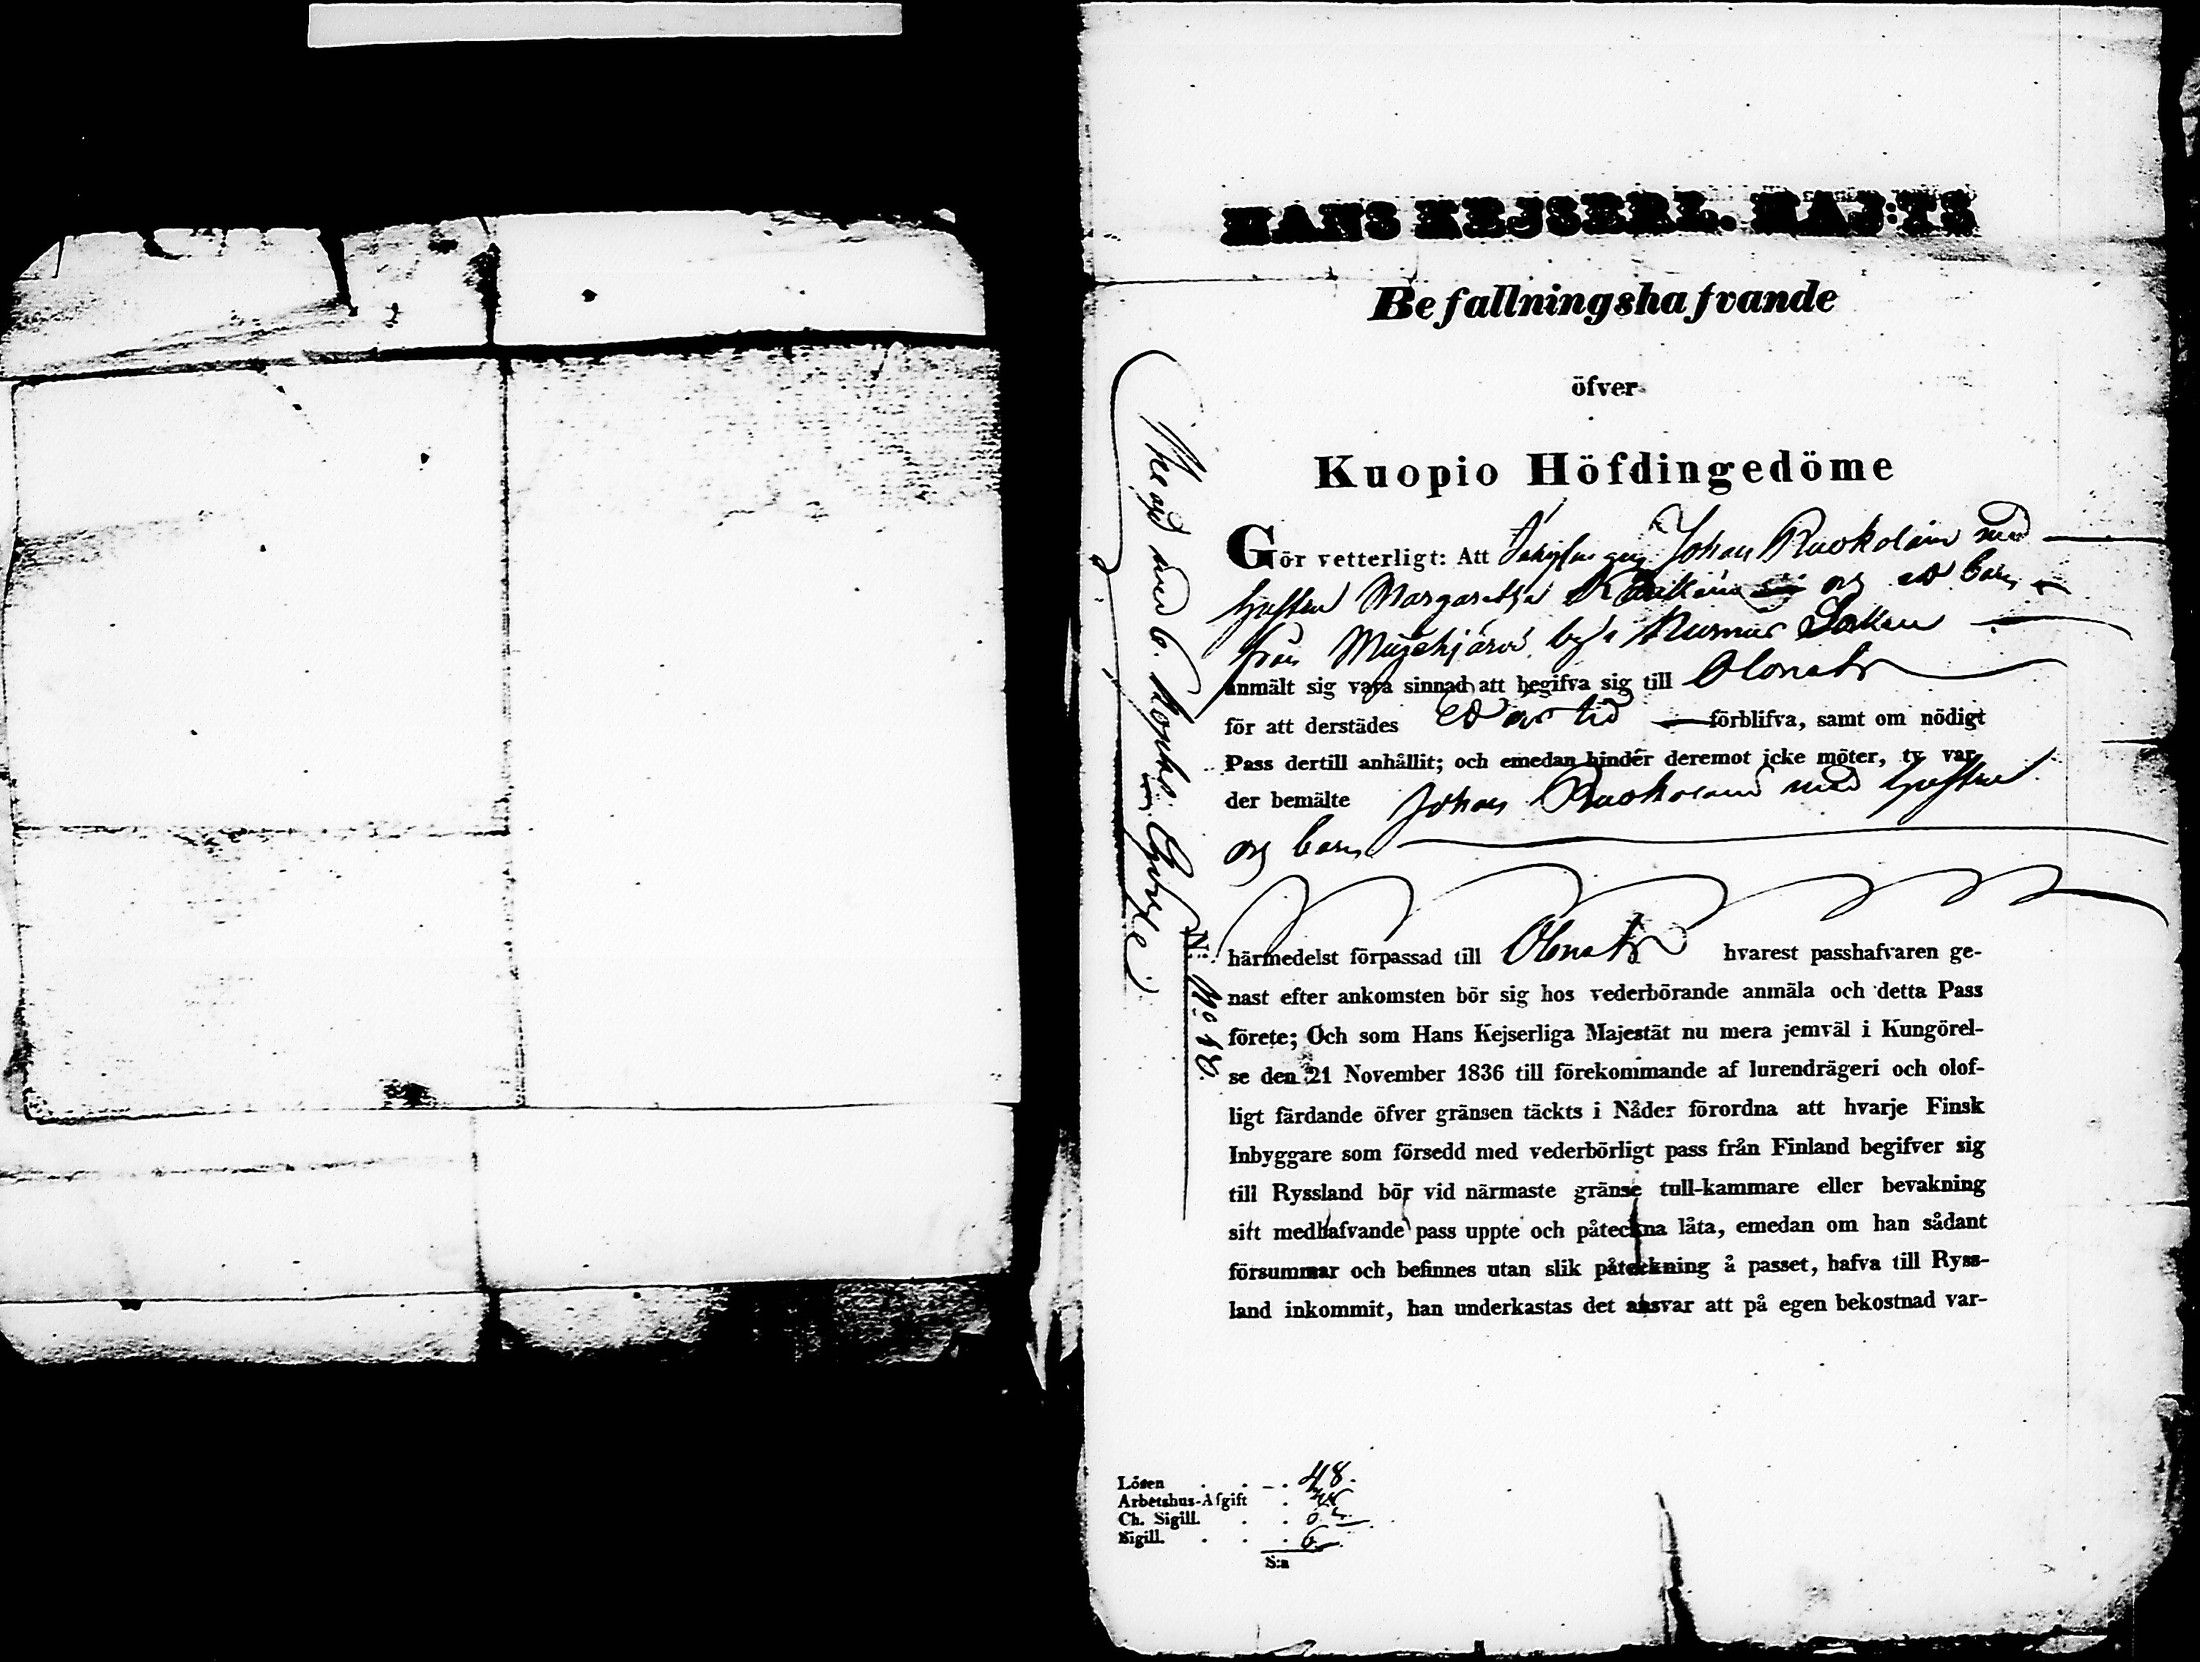 HANS KEJSERL. MAJ:TS
Befallningshafvande
öfver
Kuopio Höfdingedöme
Gör vetterligt: Att Johan Ruokolain med
hustru Margaretha og ett barn
från by i Nurmis Sokken
anmält sig vara sinnad att begifva sig till Olonets
för att derstädes Ett års tid förblifva, samt om nödigt
Pass dertill anhållit; och emedan hinder deremot icke möter, ty var-
der bemälte Johan Ruokolain med hustru
og barn
härmedelst förpassad till Olonets hvarest passhafvaren ge-
nast efter ankomsten bör sig hos vederbörande anmäla och detta Pass
förete; Och som Hans Kejserliga Majestät nu mera jemväl i Kungörel-
se den 21 November 1836 till förekommande af lurendrägeri och olof-
ligt färdande öfver gränsen täckts i Nåder förordna att hvarje Finsk
Inbyggare som försedd med vederbörligt pass från Finland begifver sig
till Ryssland bör vid närmaste gränse tull-kammare eller bevakning
sitt medhafvande pass uppte och påteckna låta, emedan om han sådant
försummar och befinnes utan slik påteckning å passet, hafva till Ryss-
land inkommit, han underkastas det ansvar att på egen bekostnad var-
med 6 Kopek
N:
Lösen 48.
Arbetshus-Afgift
Ch. Sigill.
Sigill. 6
S:a